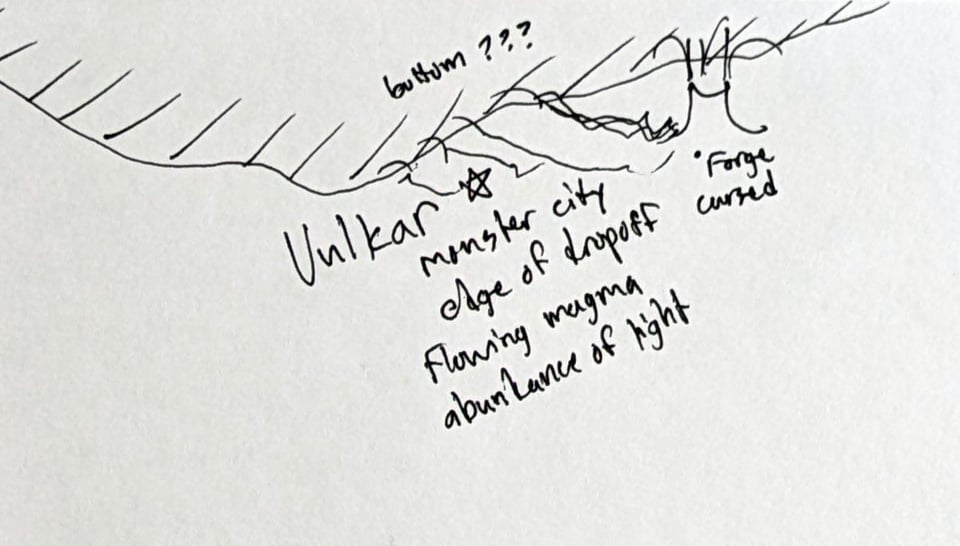 bottom ???
Vulkar
monster city
edge of dropoff
Flowing magma
abundance of light
Forge
cursed